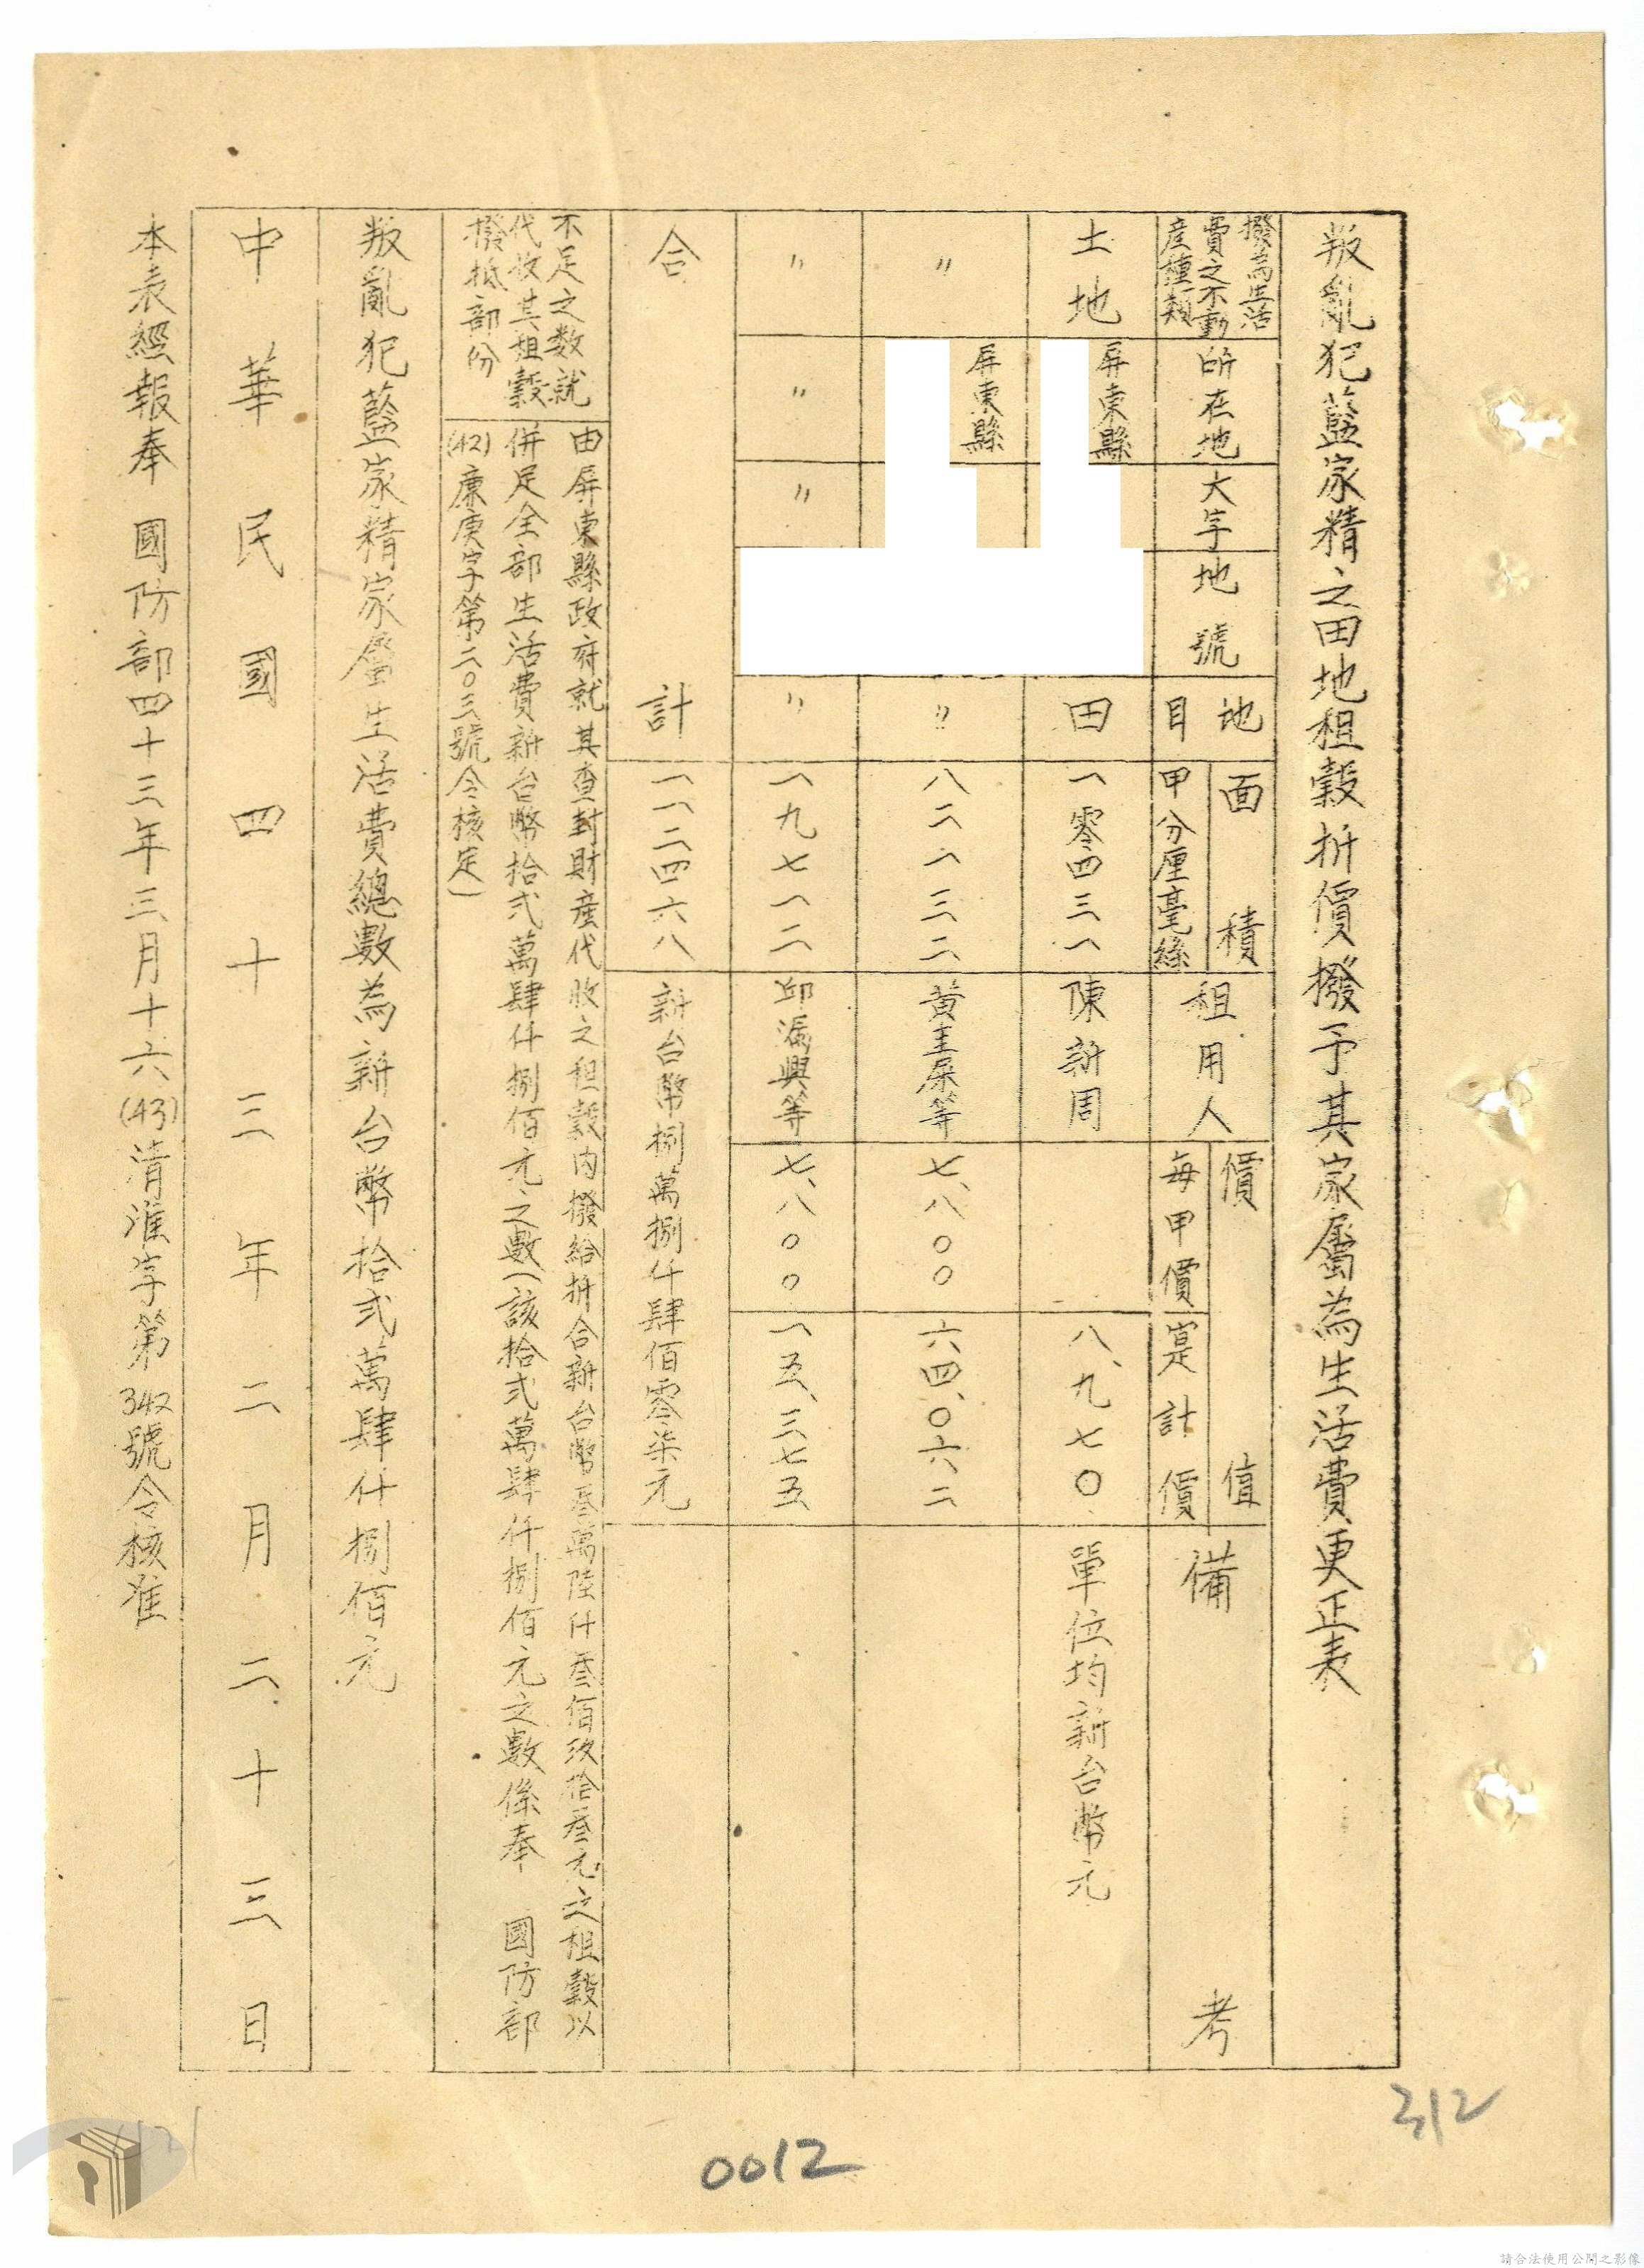 叛亂犯藍家精之田地租穀折價撥予其家屬為生活費更正表
撥為生活費之不動產種類
所在地
大字
地號
地目
面積
甲分厘毫絲
租用人
價值
每甲價
總計價
備考
土地
屏東縣
田
一零四三一
陳新周
八、九七〇
單位均新台幣元
〃
屏東縣
〃
八二一三二
黃圭屎等
七、八〇〇
六四、〇六二
〃
〃
〃
〃
一九七一二
邱漏興等
七、八〇〇
一五、三七五
合計
一一二四六八
新台幣捌萬捌仟肆佰零柒元
不足之数就
代收其租穀
撥抵部份
由屏東縣政府就其查封財產代收之租穀內撥給折合新台幣叁萬陸仟叁佰玖拾叁元之租穀以
併足全部生活費新台幣拾弍萬肆仟捌佰元之數(該拾弍萬肆仟捌佰元之數係奉 國防部
(42)廉庚字第二〇三號令核定)
叛亂犯藍家精家屬生活費總數為新台幣拾弍萬肆仟捌佰元
中華民國四十三年二月二十三日
本表經報奉 國防部四十三年三月十六(43)清淮字第342號令核准
312
0012
請合法使用公開之影像